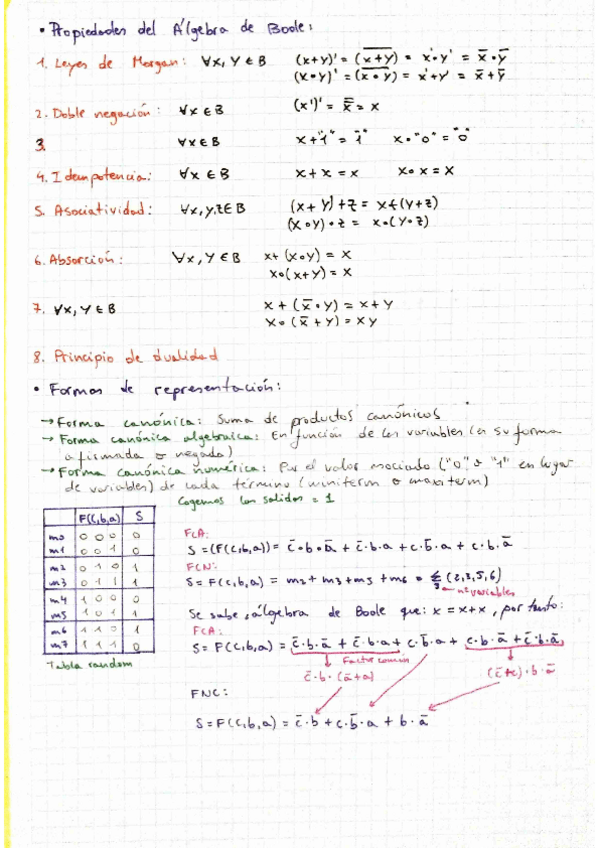 • Propiedades del Álgebra de Boole:
1. Leyes de Morgan: ∀x, y ∈ B (x+y)' = (\overline{x+y}) = x'·y' = x̄·ȳ
(x·y)' = (\overline{x·y}) = x'+y' = x̄+ȳ
2. Doble negación: ∀x ∈ B (x')' = x̿ = x
3. ∀x ∈ B x+"1" = "1" x·"0" = "0"
4. Idempotencia: ∀x ∈ B x+x = x x·x = x
5. Asociatividad: ∀x,y,z∈B (x+y)+z = x+(y+z)
(x·y)·z = x·(y·z)
6. Absorción: ∀x, y ∈ B x+(x·y) = x
x·(x+y) = x
7. ∀x, y ∈ B x+(x̄·y) = x+y
x·(x̄+y) = xy
8. Principio de dualidad
• Formas de representación:
→ Forma canónica: Suma de productos canónicos
→ Forma canónica algebraica: En función de las variables (en su forma
afirmada o negada)
→ Forma canónica numérica: Por el valor asociado ("0" o "1" en lugar
de variables) de cada término (miniterm o maxiterm)
Cogemos las salidas = 1
F(c,b,a) S
m0 0 0 0 0
m1 0 0 1 0
m2 0 1 0 1
m3 0 1 1 1
m4 1 0 0 0
m5 1 0 1 1
m6 1 1 0 1
m7 1 1 1 0
Tabla random
FCA:
S = (F(c,b,a)) = c̄·b·ā + c̄·b·a + c·b̄·a + c·b·ā
FCN:
S = F(c,b,a) = m2 + m3 + m5 + m6 = Σ3 (2,3,5,6)
nº variables
Se sabe, álgebra de Boole que: x = x+x, por tanto:
FCA:
S = F(c,b,a) = c̄·b·ā + c̄·b·a + c·b̄·a + c·b·ā + c̄·b·ā
Factor común
c̄·b·(ā+a) (c̄+c)·b·ā
FNC:
S = F(c,b,a) = c̄·b + c·b̄·a + b·ā